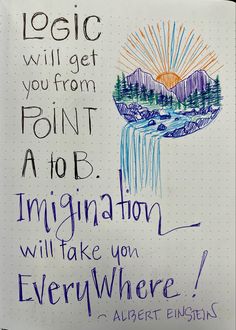 LOGIC
will get
you from
POINT
A to B.
Imigination
will take you
EveryWhere!
~ ALBERT EINSTEIN